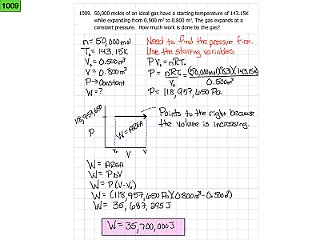 1009
1009. 50,000 moles of an ideal gas have a starting temperature of 143.15K
while expanding from 0.500 m³ to 0.800 m³. The gas expands at a
constant pressure. How much work is done by the gas?
n = 50,000 mol
T₀ = 143.15K
V₀ = 0.500m³
V = 0.800m³
P → Constant
W = ?
Need to find the pressure first.
Use the starting variables.
PV₀ = nRT₀
P = nRT₀ / V₀ = (50,000mol)(8.31)(143.15K) / 0.500m³
P = 118,957,650 Pa
118,957,650
P
W = AREA
V₀ V
V
Points to the right because
the volume is increasing.
W = AREA
W = PΔV
W = P(V-V₀)
W = (118,957,650 Pa)(0.800m³ - 0.500m³)
W = 35,687,295 J
W = 35,700,000 J